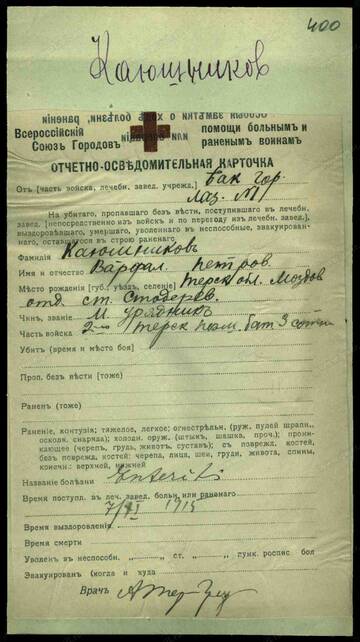 400
Каюшников
Особыя замѣтки о ходѣ болѣзни, раненія
Всероссійскій
Союзъ Городовъ
помощи больнымъ и
раненымъ воинамъ
ОТЧЕТНО-ОСВѢДОМИТЕЛЬНАЯ КАРТОЧКА
Отъ [часть войска, лечебн. завед. учрежд.] Бак гор.
Лаз. №1
На убитаго, пропавшаго безъ вѣсти, поступившаго въ лечебн.
завед. [непосредственно изъ войскъ и по переходу изъ лечебн. завед.],
выздоровѣвшаго, умершаго, уволеннаго въ неспособные, эвакуирован-
наго, оставшагося въ строю раненаго.
Фамилія Каюшниковъ
Имя и отчество Варфал. Петров
Мѣсто рожденія [губ., уѣздъ, селеніе] Терск обл. Моздов
отд. ст. Стодерев.
Чинъ, званіе М. урядникъ
Часть войска 2-го Терск пласт. бат 3 сотни
Убитъ (время и мѣсто боя)
Проп. безъ вѣсти (тоже)
Раненъ (тоже)
Раненіе, контузія; тяжелое, легкое; огнестрѣльн. (руж. пулей шрапн.,
осколк. снаряда); холодн. оруж. (штыкъ, шашка, проч.); прони-
кающее (черепъ, грудь, животъ, суставъ); съ поврежд. костей,
безъ поврежд. костей: черепа, лица, шеи, груди, живота, спины,
конечн.: верхней, нижней
Названіе болѣзни Enteriti
Время поступл. въ леч. завед. больн. или раненаго
7/XI 1915
Время выздоровленія
Время смерти
Уволенъ въ неспособн. „ „ ст. „ пунк. роспис бол
Эвакуированъ (когда и куда
Врачъ